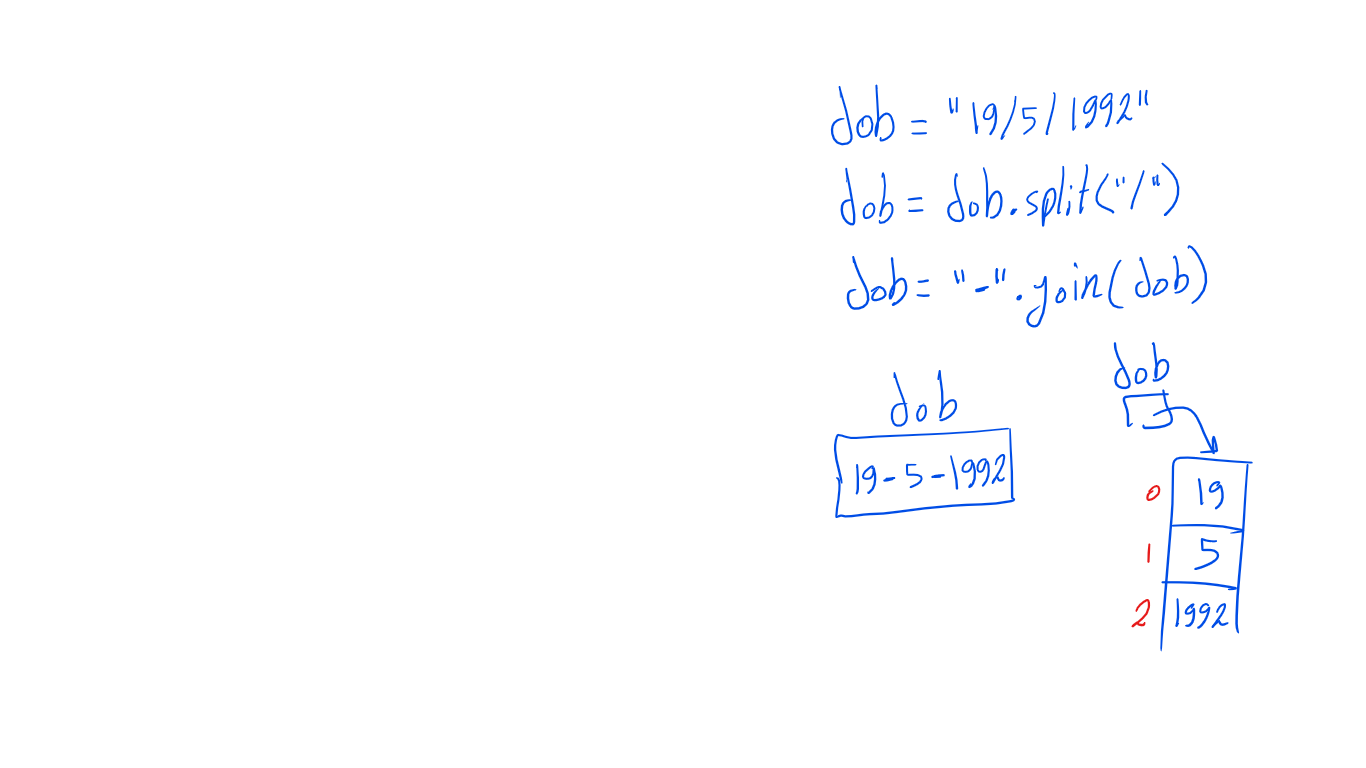 dob = "19/5/1992"
dob = dob.split("/")
dob = "-".join(dob)
dob
dob
19-5-1992
0 19
1 5
2 1992